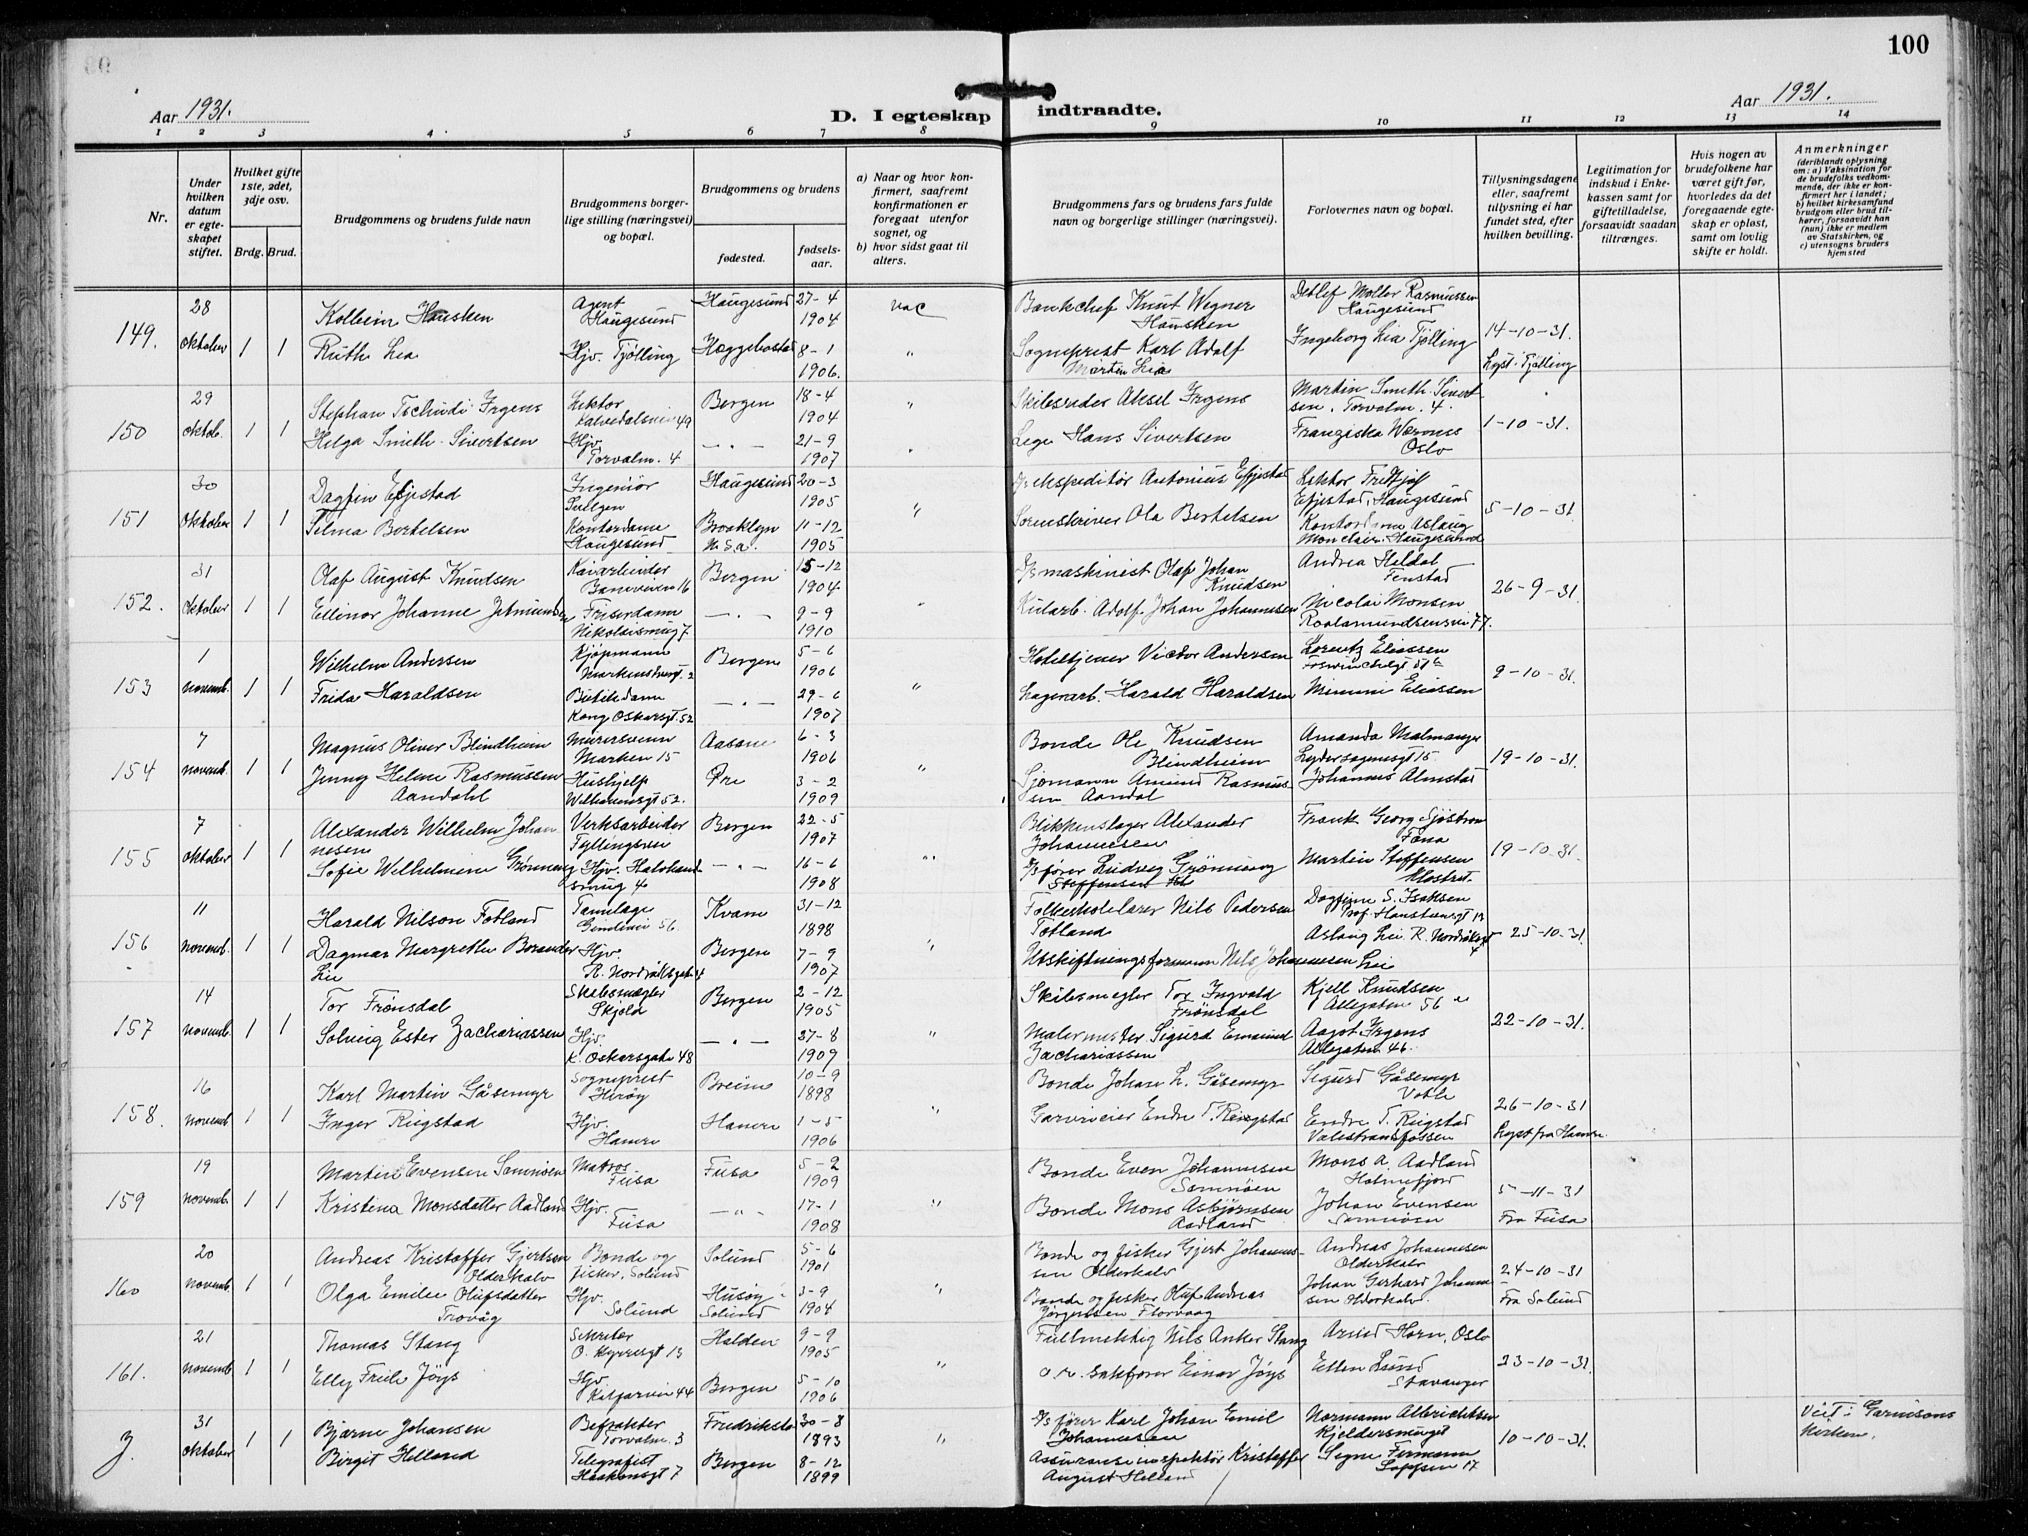 100
Aar 1931.
D. I egteskap indtraadte.
Aar 1931.
1 2 3 4 5 6 7 8 9 10 11 12 13 14
Nr.
Under hvilken datum er egteskapet stiftet.
Hvilket gifte 1ste, 2det, 3dje osv.
Brdg. Brud.
Brudgommens og brudens fulde navn
Brudgommens borgerlige stilling (næringsvei) og bopæl.
Brudgommens og brudens
fødested.
fødselsaar.
a) Naar og hvor konfirmert, saafremt konfirmationen er foregaat utenfor sognet, og
b) hvor sidst gaat til alters.
Brudgommens fars og brudens fars fulde navn og borgerlige stillinger (næringsvei).
Forlovernes navn og bopæl.
Tillysningsdagene eller, saafremt tillysning ei har fundet sted, efter hvilken bevilling.
Legitimation for indskud i Enkekassen samt for giftetilladelse, forsaavidt saadan tiltrænges.
Hvis nogen av brudefolkene har været gift før, hvorledes da det foregaaende egteskap er opløst, samt om lovlig skifte er holdt.
Anmerkninger
(deriblandt oplysning om: a) Vaksination for de brudefolks vedkommende, der ikke er konfirmert her i landet; b) hvilket kirkesamfund brudgom eller brud tilhører, forsaavidt han (hun) ikke er medlem av Statskirken, og c) utensogns bruders hjemsted
149. 28 oktober 1 1
Kolbein Hausken Agent Haugesund Haugesund 27-4 1904 vac Bankchef Knut Wegner Hausken Detlef Møller Rasmussen Haugesund
Ruth Lia Hjv. Tjølling Hæggebostad 8-1 1906. " Sogneprest Karl Adolf Martin Lia Ingeborg Lia Tjølling 14-10-31. Lyst i Tjølling
150 29 oktob. 1 1
Stephan Tschudi Irgens Lektor Kalvedalsvei 49 Bergen 18-4 1904 " Skibsreder Aksel Irgens Martin Smith-Sivertsen, Torvalm. 4.
Helga Smith-Sivertsen Hjv. Torvalm. 4 — " — 21-9 1907 Lege Hans Sivertsen Franziska Oslo 1-10-31.
151 30 oktober 1 1
Dagfin Efjestad Ingeniør Haugesund 20-3 1905 " Antonius Efjestad Lektor Fridtjof Efjestad, Haugesund
Selma Bertelsen Kontordame Haugesund Brooklyn U.S.A. 11-12 1905 Sorenskriver Ola Bertelsen Kontordame Aslaug Haugesund 5-10-31.
152. 31 oktober 1 1
Olaf August Knudsen 16 Bergen 15-12 1904 D/s maskinist Olaf Johan Knudsen Andrea Heldal Fenstad
Ellinor Johanne Friserdame Nikolaismug 7 — " — 9-9 1910 " Kularb. Adolf Johan Johannesen Nicolai Monsen Roaldamundsensvei 77. 26-9-31.
153 1 novemb. 1 1
Wilhelm Andersen Kjøpmann 2 Bergen 5-6 1906 Hoteltjener Victor Andersen Lorentz Eliassen
Frida Haraldsen Butikdame Kong Oskarsgt. 52 — " — 29-6 1907 " Lagerarb. Harald Haraldsen Mimmi Eliassen 9-10-31.
154 7 novemb. 1 1
Magnus Oliver Blindheim Murersvenn Marken 15 Aasane 6-3 1906 Bonde Ole Knudsen Blindheim Amanda Malmanger Lydersagensgt 15
Jenny Helene Rasmussen Aandahl Hushjelp Wilhelmsgt 52. Øre 3-2 1909 " Sjømann Amund Rasmussen Aandal Johannes Almstad 19-10-31.
155 7 oktober 1 1
Alexander Wilhelm Johannesen Verksarbeider Fyllingsvei Bergen 22-5 1907 Blikkenslager Alexander Johannesen Frank Georg Sjöström Fana
Sofie Wilhelmine Grønnevig Hjv. — " — 16-6 1908 " D/s fører Ludvig Grønnevig Martin Steffensen Klostret. 19-10-31.
156 11 novemb. 1 1
Harald Nilson Fotland Tannlæge 56 Kvam 31-12 1898 Folkeskolelærer Nils Pedersen Fotland Dagfinn S. Isaksen Prof. Hansteensgt 12
Dagmar Margrethe Lie Hjv. R. Nordråksgat. 4 Bergen 7-9 1907 " Utskiftningsformann Nils Johannesen Lie Aslaug Lie R. Nordråksgt 25-10-31.
157 14 novemb. 1 1
Tor Frønsdal Skibsmegler Skjold Bergen 2-12 1905 Skibsmegler Tor Ingvald Frønsdal Kjell Knudsen Allegaten 56 a
Solveig Ester Zachariassen Hjv. K. Oskarsgate 48 — " — 27-8 1909 " Malermester Sigurd Emanuel Zachariassen Aagot Irgens Allegaten 46. 22-10-31.
158. 16 novemb. 1 1
Karl Martin Gåsemyr Sogneprest Herøy Breim 10-9 1898 Bonde Johan L. Gåsemyr Sigurd Gåsemyr
Inger Ringstad Hjv. Hamre Hamre 1-5 1906 " Garverieier Endre T. Ringstad Endre T. Ringstad Valestrandfossen 26-10-31 Lyst fra Hamre.
159 19 novemb. 1 1
Martin Evensen Samnøen Matros Fusa Fusa 5-2 1909 Bonde Even Johannesen Samnøen Mons A. Aadland Holmefjord
Kristina Monsdatter Aadland Hjv. Fusa — " — 17-1 1908 " Bonde Mons Asbjørnsen Aadland Johan Evensen Samnøen 5-11-31 Fra Fusa
160 20 novemb. 1 1
Andreas Kristoffer Gjertsen Olderkalv Bonde og fisker, Solund Solund 5-6 1901 Bonde og fisker Gjert Johannessen Olderkalv Andreas Johannesen Olderkalv
Olga Emilie Olufsdatter Trovåg Hjv. Solund Husøy Solund 3-9 1904 " Bonde og fisker Oluf Andreas Jørgensen Johan Gerhard Johannesen Olderkalv. 24-10-31 Fra Solund
161. 21 novemb. 1 1
Thomas Stang Sekretær O. Kyrresgt 13 Halden 9-9 1905 Fullmektig Nils Anker Stang Arvid Horn, Oslo
Elly Friele Jøys Hjv. Kalfarvei 44 Bergen 5-10 1906 " O.r. sakfører Einar Jøys Ellen Lund Stavanger 23-10-31.
J. 31 oktober 1 1
Bjarne Johansen Befrakter Torvalm. 3 Fredrikstad 30-8 1893 D/s fører Karl Johan Emil Johannesen Normann Albrichtsen Kjeldersmuget Viet i Garnisonskirken.
Birgit Helland Telegrafist Haakonsgt 7 Bergen 8-12 1899 " Assuranseinspektør Kristoffer August Helland Signe 17 10-10-31.